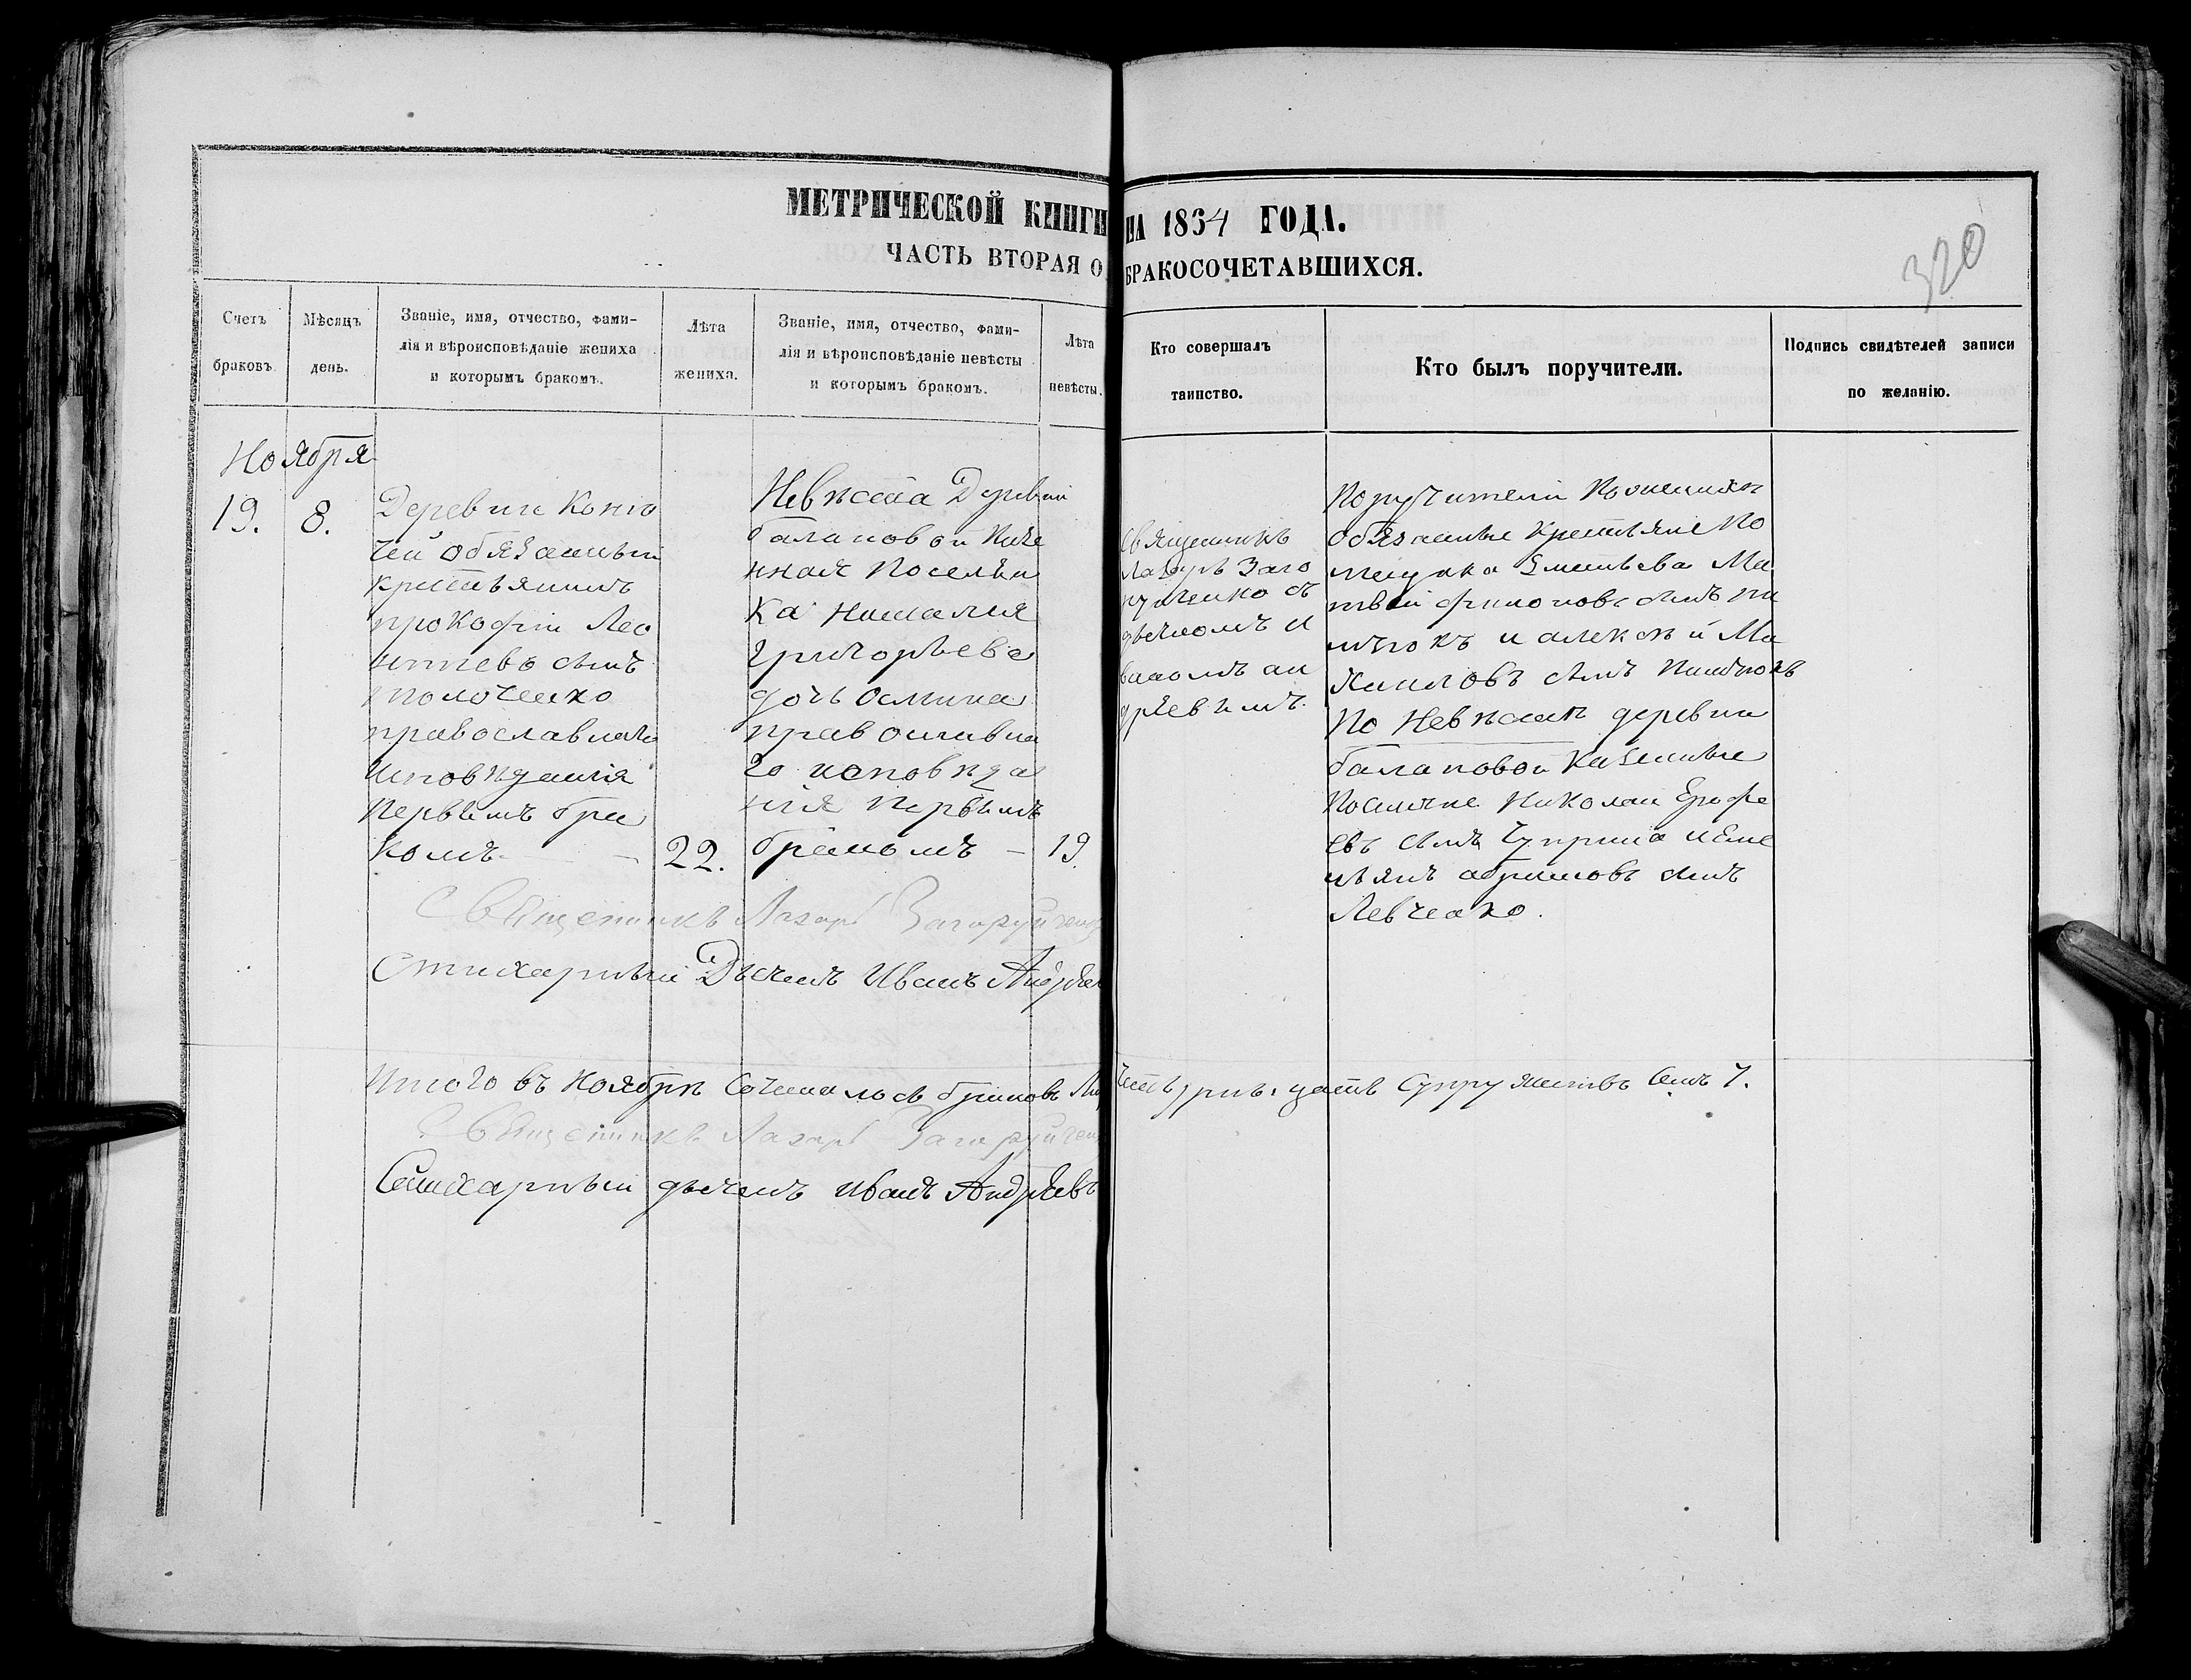 МЕТРИЧЕСКОЙ КНИГИ НА 1864 ГОДА.
ЧАСТЬ ВТОРАЯ О БРАКОСОЧЕТАВШИХСЯ.
320
Счетъ браковъ.
Мѣсяцъ день.
Званіе, имя, отчество, фами-
лія и вѣроисповѣданіе жениха
и которымъ бракомъ.
Лѣта жениха.
Званіе, имя, отчество, фами-
лія и вѣроисповѣданіе невѣсты
и которымъ бракомъ.
Лѣта невѣсты.
Кто совершалъ
таинство.
Кто былъ поручители.
Подпись свидѣтелей записи
по желанію.
Ноября
19.
8.
Деревни
чей обязанный
крестьянинъ
прокофій Лео
нтиевъ сынъ
толоченко
православнаго
исповѣданія
Первымъ бра
комъ
22.
Невѣста Деревни
балановой
нная Поселян
ка наталия
григорьева
дочь осмина
православна
го исповѣда
нія первымъ
бракомъ
19.
Священникъ
Лазарь Заго
руйченко съ
дьячкомъ И
ваномъ ан
дреевимъ.
Поручители По женихѣ
обязанные крестьяне По
мещика Ма
твей филоповъ сынъ
и алексѣй Ми
хаиловъ сынъ
По Невѣстѣ деревни
балановой казенные
Поселяне Николай Ерофе
евъ сынъ Чуприна и Еме
льянъ абрамовъ сынъ
Левченко.
Священникъ Лазарь Загоруйченко
Стихарный Дьячекъ Иванъ Андрѣев
Итого въ Ноябрѣ Сочеталось браковъ
супружествъ Семь 7.
Священникъ Лазарь Загоруйченко
Стихарный дьячекъ Иванъ Андрѣевъ